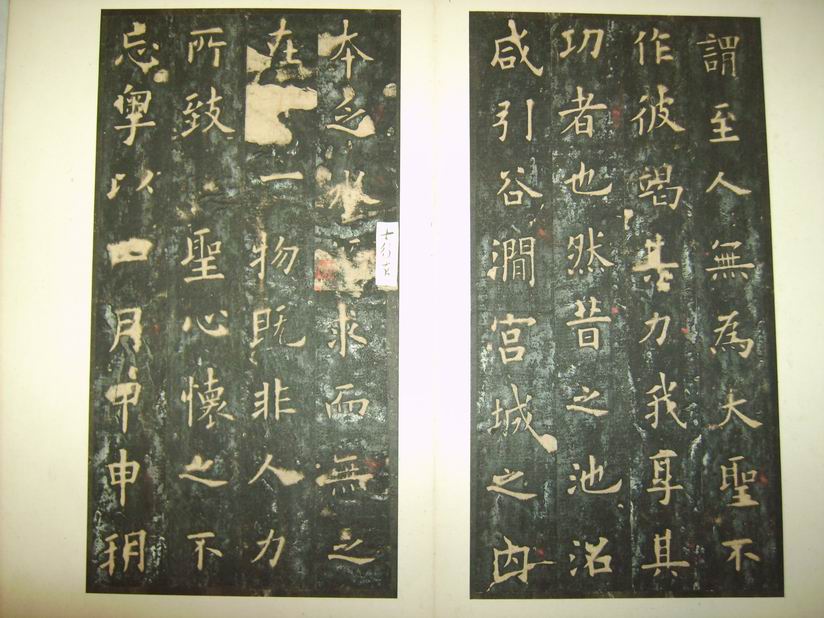 謂至人無為大聖不
作彼竭其力我享其
功者也然昔之池沼
咸引谷澗宮城之内
本乏水求而無之
在一物既非人力
所致聖心懷之不
忘粤以四月甲申朔